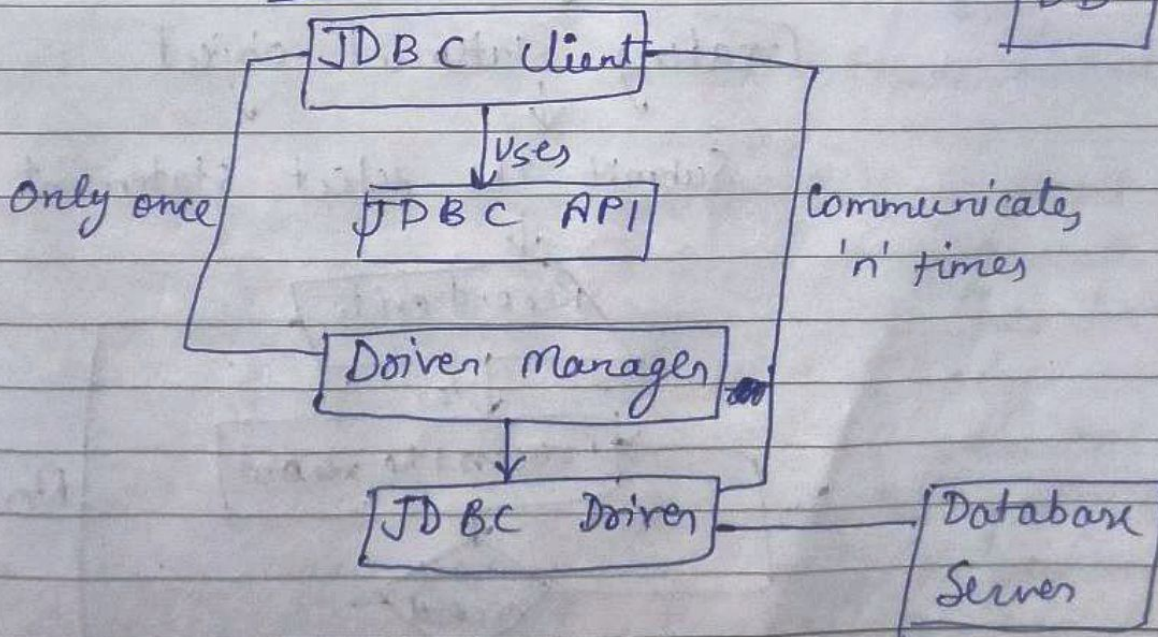 JDBC Client
Uses
Only once
JDBC API
Communicates
'n' times
Driver Manager
JDBC Driver
Database
Server